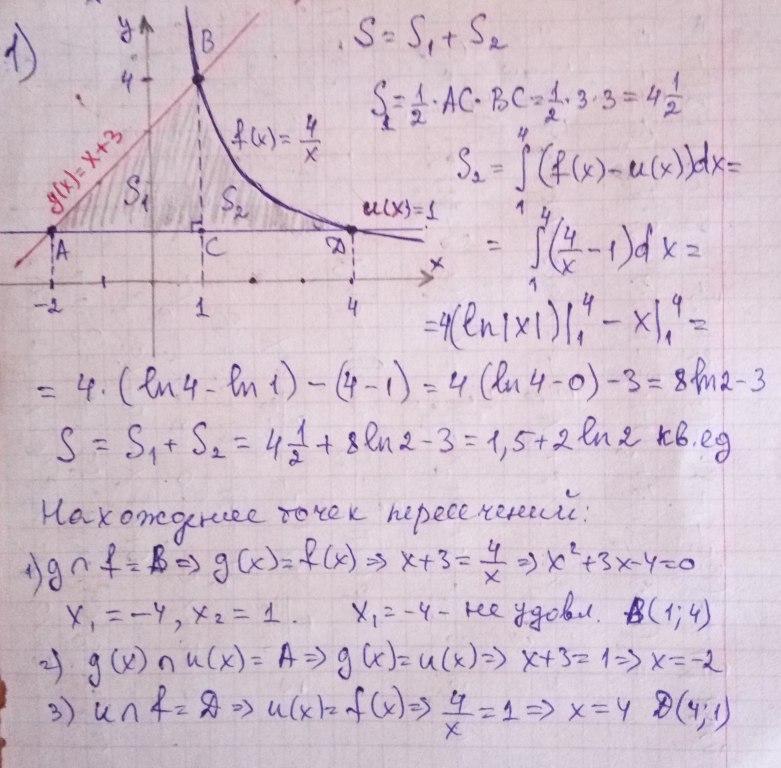 1)
y
B
4
g(x) = x+3
f(x) = 4/x
S₁
S₂
u(x)=1
A
C
D
x
-2
1
4
S = S₁ + S₂
S₁ = 1/2 · AC · BC = 1/2 · 3 · 3 = 4 1/2
S₂ = ∫₁⁴ (f(x) - u(x))dx =
= ∫₁⁴ (4/x - 1)dx =
= 4(ln|x|)|₁⁴ - x|₁⁴ =
= 4 · (ln4 - ln1) - (4-1) = 4(ln4-0) - 3 = 8ln2-3
S = S₁ + S₂ = 4 1/2 + 8ln2 - 3 = 1,5 + 2ln2 кв.ед
Нахождение точек пересечений:
1) g ∩ f = B ⇒ g(x) = f(x) ⇒ x+3 = 4/x ⇒ x²+3x-4=0
x₁ = -4, x₂ = 1. x₁ = -4 - не удовл. B(1;4)
2) g(x) ∩ u(x) = A ⇒ g(x) = u(x) ⇒ x+3 = 1 ⇒ x = -2
3) u ∩ f = D ⇒ u(x) = f(x) ⇒ 4/x = 1 ⇒ x = 4 D(4;1)